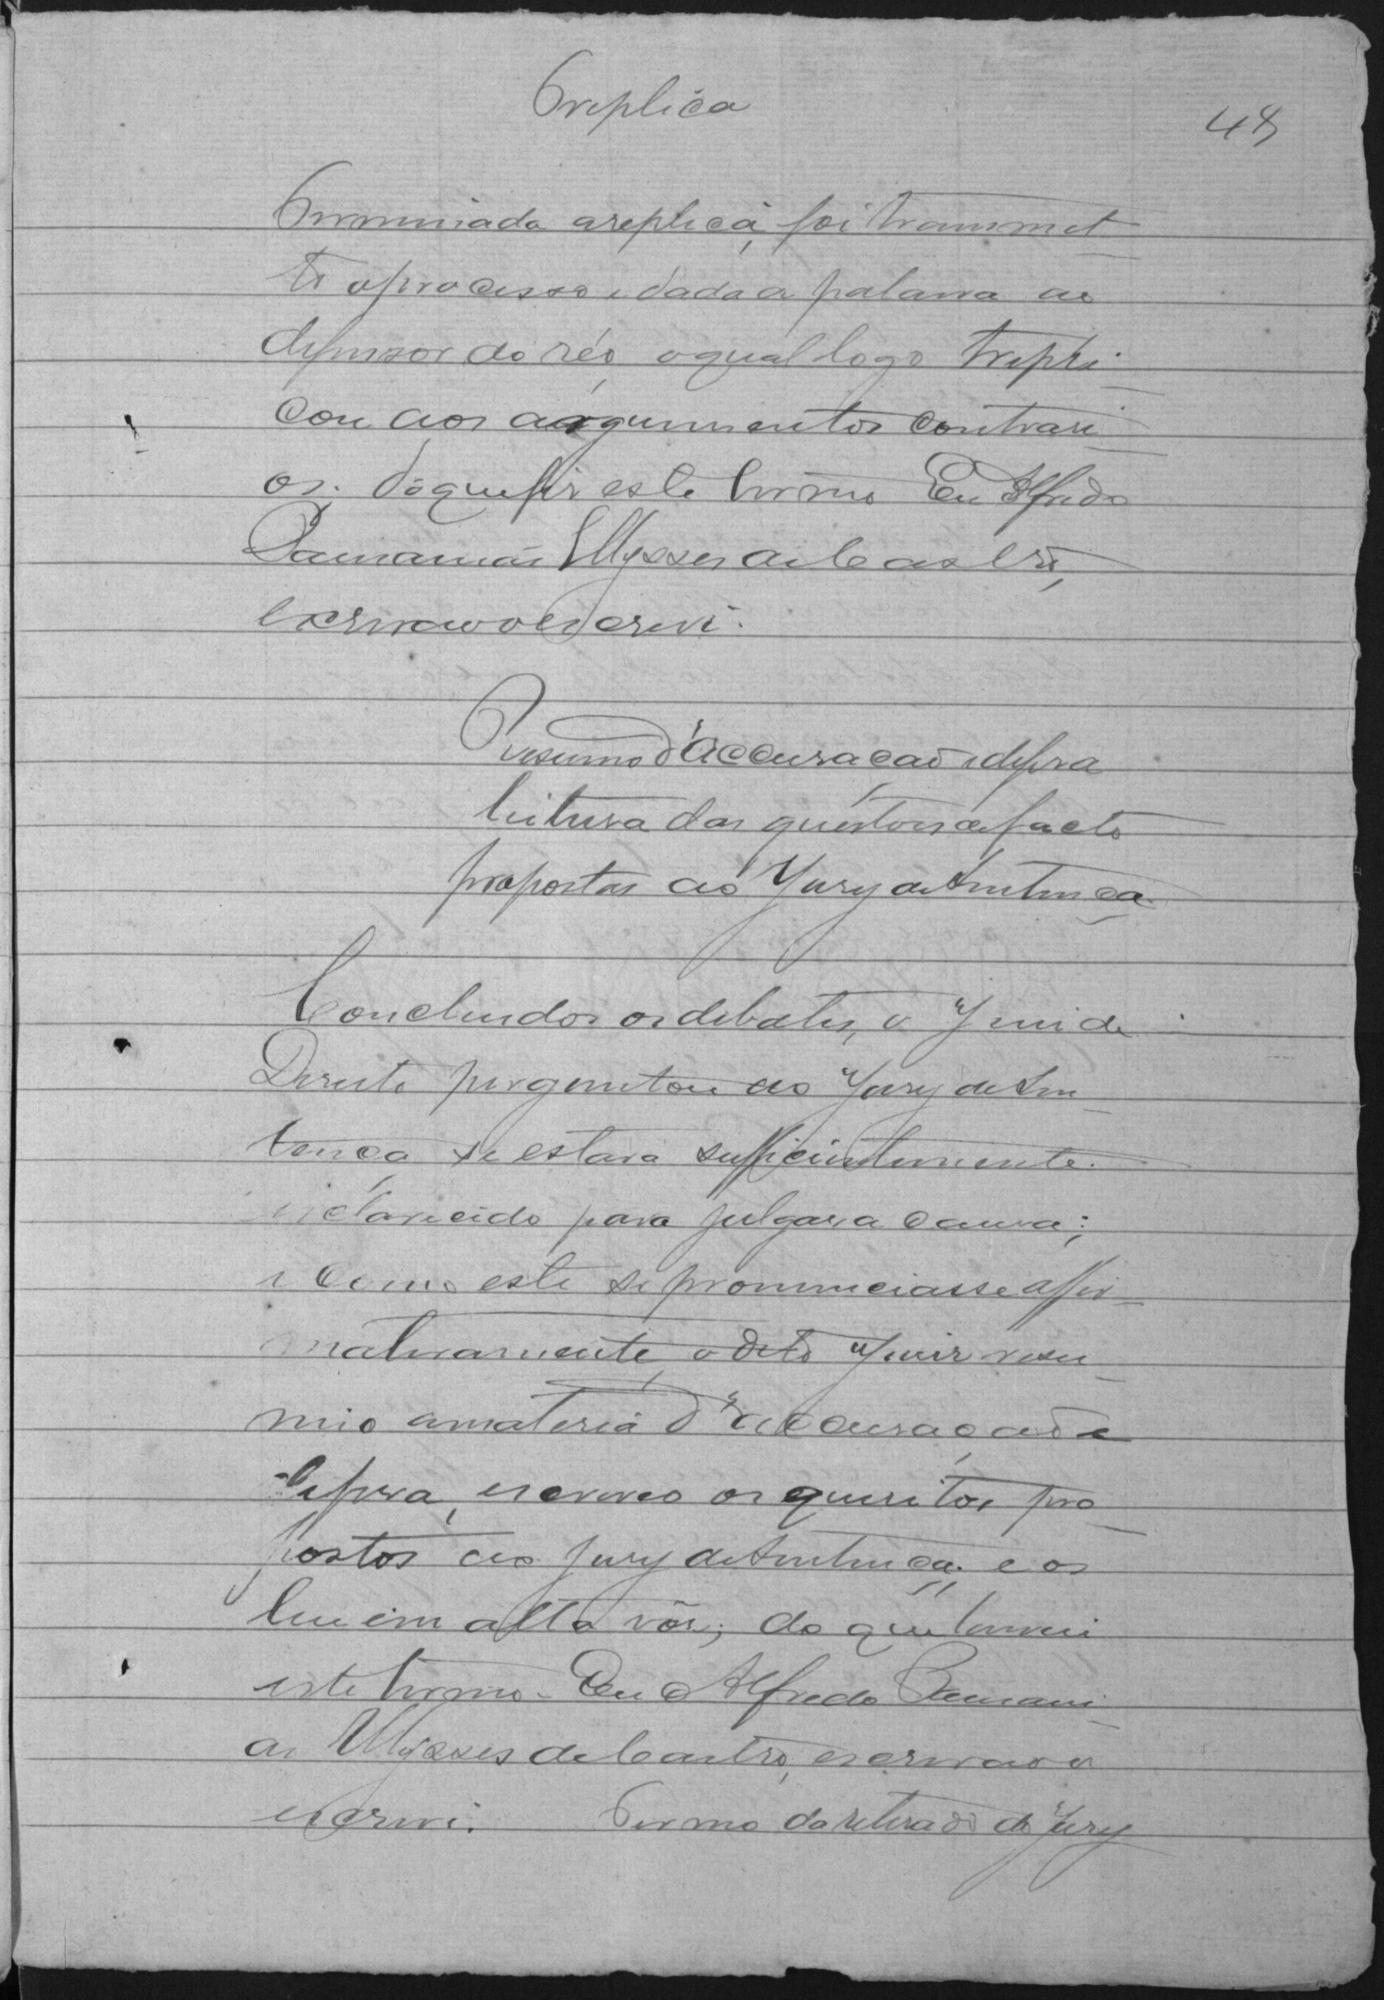 Treplica
48
Terminada a replica, foi transmet
to o processo e dada a palavra ao
defensor do réo, o qual logo trepli-
cou aos argumentos contrari
os. Do que fiz este termo. Eu Alfredo
Damaniãs Ulysses de Castro,
escrivão o escrevi.
Resumo d'accusação e defesa
leitura das questões de facto
propostas ao Jury de Sentença
Concluidos os debates, o Juiz de
Direito perguntou ao Jury de Sen
tença se estava sufficientemente
esclarecido para julgar a causa;
e como este se pronunciasse affir
mativamente, o dito Juiz resu
mio a materia d'accusação e
defesa, escreveo os quesitos pro
postos ao jury de Sentença e os
leu em alta vóz; do que lavrei
este termo. Eu Alfredo
as Ulysses de Castro, escrivão o
escrevi. Termo da retirada do Jury